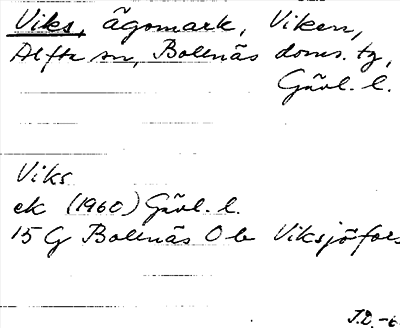 Viks, ägomark, Viken,
Alfta sn, Bollnäs doms. tg,
Gävl. l.
Viks
ek (1960) Gävl. l.
15 G Bollnäs Ob Viksjöfors
J.D. -6